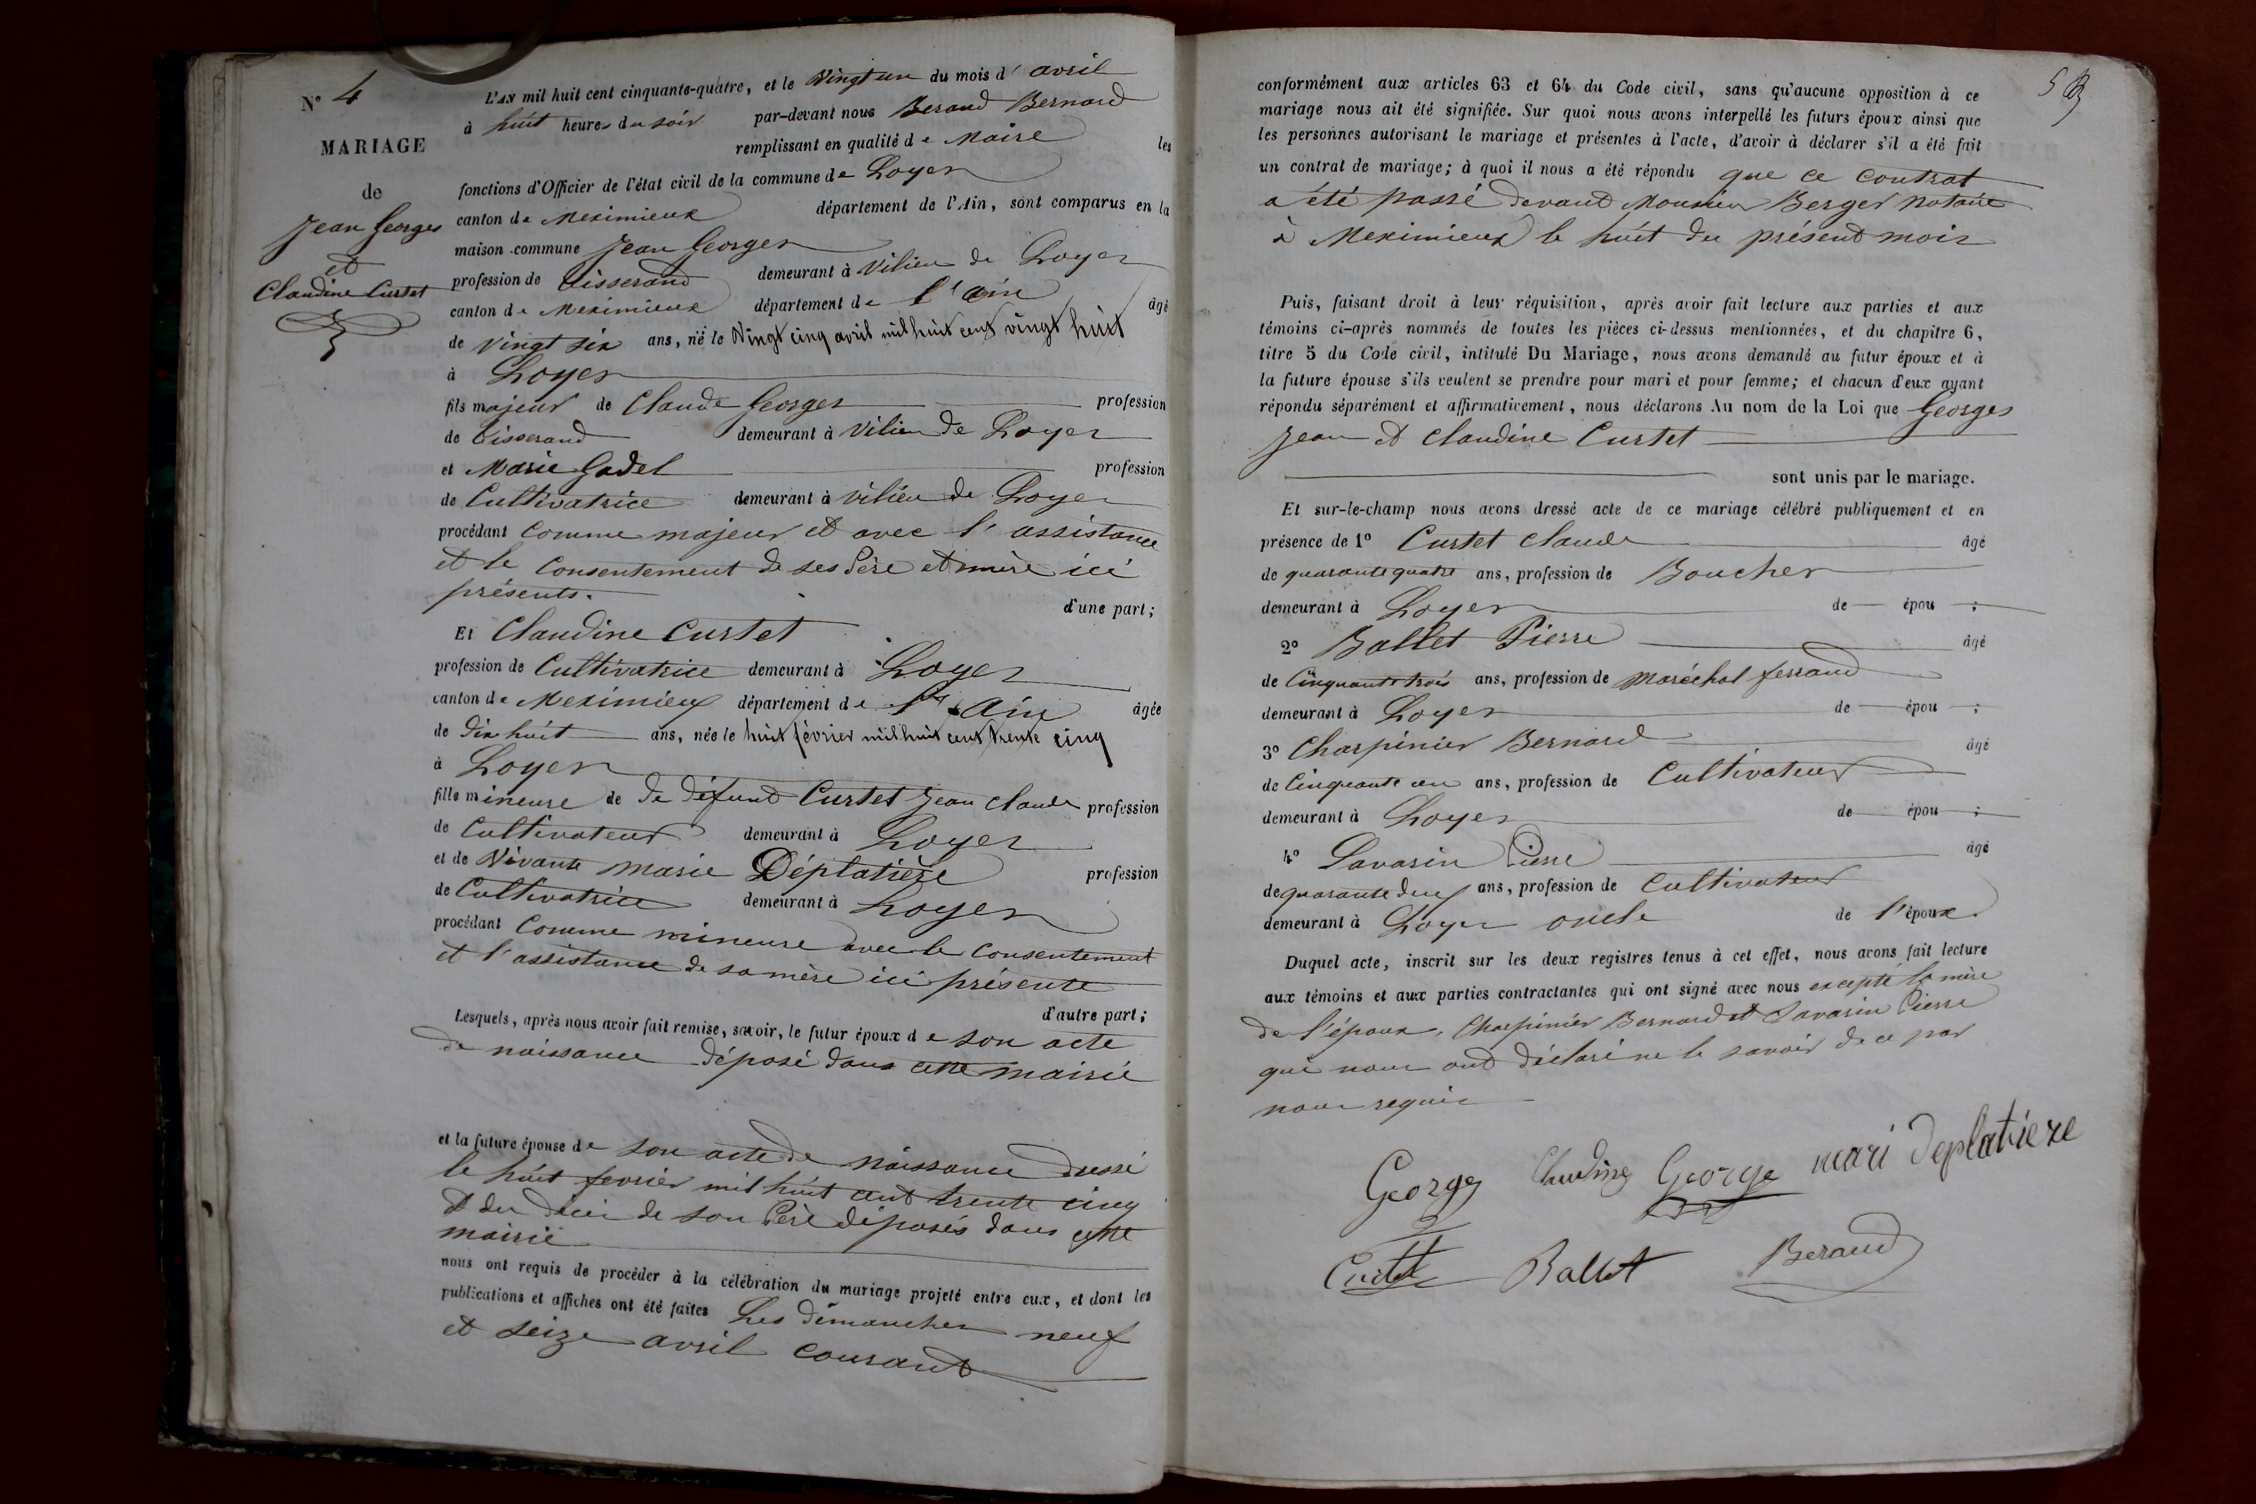 N° 4
MARIAGE
de
Jean Georges
et
Claudine Curtet
L'AN mil huit cent cinquante-quatre, et le Vingt un du mois d' avril
à huit heures du soir par-devant nous Beraud Bernard
remplissant en qualité de Maire les
fonctions d'Officier de l'état civil de la commune de Loyes
canton de Meximieux département de l'Ain, sont comparus en la
maison commune Jean Georges
profession de tisserand demeurant à Vilieu de Loyes
canton de Meximieux département de l'ain âgé
de vingt six ans, né le Vingt cinq avril mil huit cent vingt huit
à Loyes
fils majeur de Claude Georges profession
de tisserand demeurant à Vilieu de Loyes
et Marie Gadel profession
de Cultivatrice demeurant à vilieu de Loyes
procédant comme majeur et avec l'assistance
et le consentement de ses Père et mère ici
présents. d'une part;
Et Claudine Curtet
profession de Cultivatrice demeurant à Loyes
canton de Meximieux département de l'Ain âgée
de dix huit ans, née le huit février mil huit cent trente cinq
à Loyes
fille mineure de de défunt Curtet Jean Claude profession
de Cultivateur demeurant à Loyes
et de Vivante Marie Déplatière profession
de Cultivatrice demeurant à Loyes
procédant Comme mineure avec le consentement
et l'assistance de sa mère ici présente
d'autre part;
Lesquels, après nous avoir fait remise, savoir, le futur époux de son acte
de naissance déposé dans cette mairie
et la future épouse de son acte de naissance dressé
le huit fevrier mil huit cent trente cinq
et du décès de son Père déposés dans cette
mairie
nous ont requis de procéder à la célébration du mariage projeté entre eux, et dont les
publications et affiches ont été faites Les dimanches neuf
et seize avril courant
conformément aux articles 63 et 64 du Code civil, sans qu'aucune opposition à ce
mariage nous ait été signifiée. Sur quoi nous avons interpellé les futurs époux ainsi que
les personnes autorisant le mariage et présentes à l'acte, d'avoir à déclarer s'il a été fait
un contrat de mariage; à quoi il nous a été répondu que ce contrat
a été passé devant Monsieur Berger notaire
à Meximieux le huit du présent mois
Puis, faisant droit à leur réquisition, après avoir fait lecture aux parties et aux
témoins ci-après nommés de toutes les pièces ci-dessus mentionnées, et du chapitre 6,
titre 5 du Code civil, intitulé Du Mariage, nous avons demandé au futur époux et à
la future épouse s'ils veulent se prendre pour mari et pour femme; et chacun d'eux ayant
répondu séparément et affirmativement, nous déclarons Au nom de la Loi que Georges
Jean et Claudine Curtet
sont unis par le mariage.
Et sur-le-champ nous avons dressé acte de ce mariage célébré publiquement et en
présence de 1° Curtet Claude âgé
de quarante quatre ans, profession de Boucher
demeurant à Loyes de épou ;
2° Ballet Pierre âgé
de Cinquante trois ans, profession de maréchal ferrand
demeurant à Loyes de épou ;
3° Charpinier Bernard âgé
de Cinquante un ans, profession de Cultivateur
demeurant à Loyes de épou ;
4° Savarin Pierre âgé
de quarante deux ans, profession de Cultivateur
demeurant à Loyes oncle de l'époux.
Duquel acte, inscrit sur les deux registres tenus à cet effet, nous avons fait lecture
aux témoins et aux parties contractantes qui ont signé avec nous excepté la mère
de l'époux, Charpinier Bernard et Savarin Pierre
qui nous ont déclaré ne le savoir de ce par
nous requis
George Claudine George mari Deplatiere
Curtet Ballet Beraud